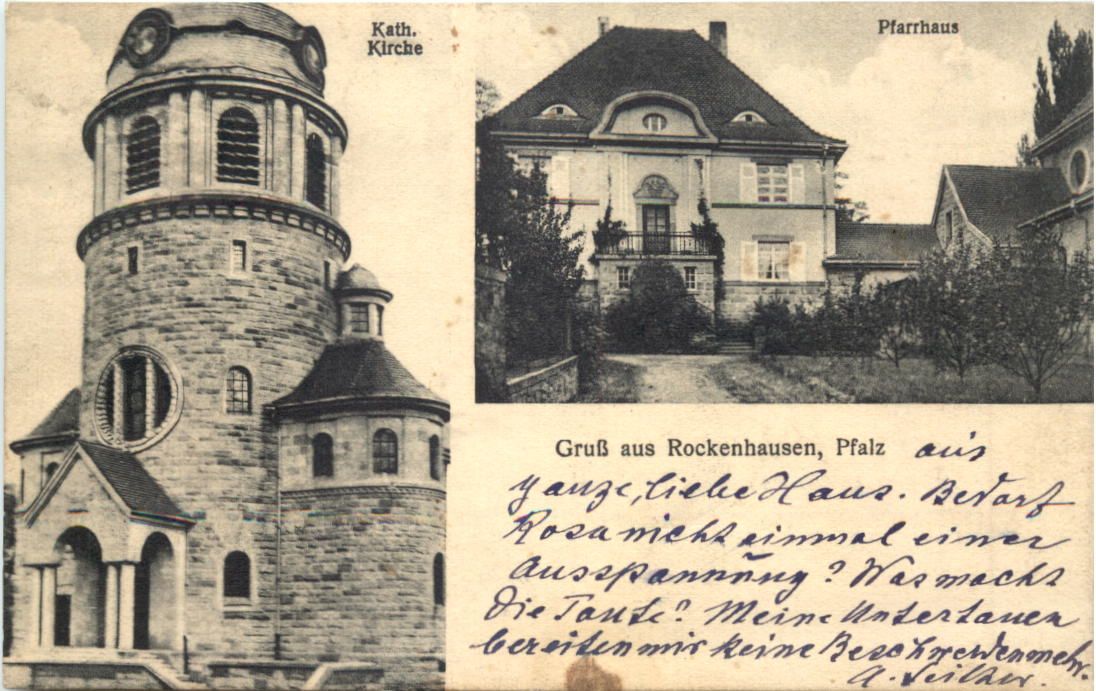 Kath.
Kirche
Pfarrhaus
Gruß aus Rockenhausen, Pfalz aus
ganze, liebe Haus. Bedarf
Rosa nicht einmal einer
Ausspannung? Was macht
die Taute? Meine Untertauen
bereiten mir keine Beschwerden mehr.
A.